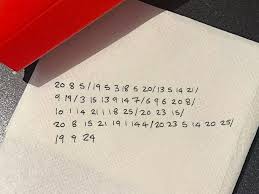 20 8 5/19 5 3 18 5 20/13 5 14 21/
9 19/3 15 13 9 14 7/6 9 6 20 8/
10 1 14 21 1 18 25/20 23 15/
20 8 15 21 19 1 14 4/20 23 5 14 20 25/
19 9 24